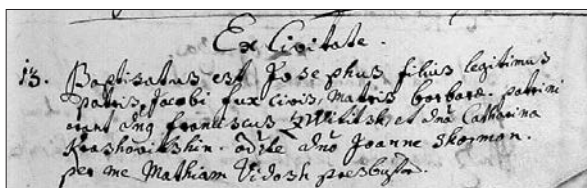 Ex Civitate.
13. Baptisatus est Josephus filius legitimus
patris, Jacobi fux civis, matris borbaræ. patrini
erant dng Franciscus et dna Catharina
dno Joanne Skerman.
per me Mathiam Vidosh presbyt.